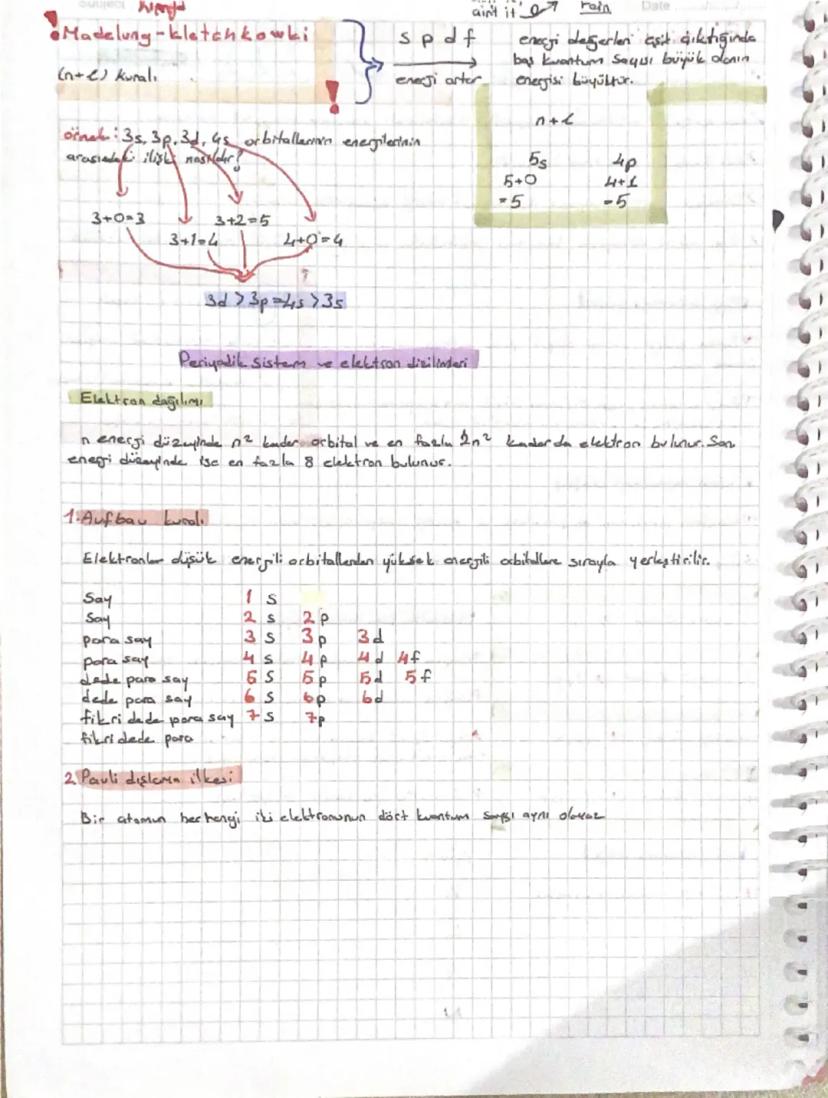 ain't it rain
Date
! Madelung-Kletchkowki
(n+ℓ) kuralı !
s p d f
enerji artar
enerji değerleri eşit çıktığında
baş kuantum sayısı büyük olanın
enerjisi büyüktür.
n+ℓ
5s 4p
5+0 4+1
=5 =5
örnek: 3s, 3p, 3d, 4s orbitallerinin enerjilerinin
arasındaki ilişki nasıldır?
3+0=3 3+2=5
3+1=4 4+0=4
3d > 3p = 4s > 3s
Periyodik sistem ve elektron dizilimleri
Elektron dağılımı
n enerji düzeyinde n² kadar orbital ve en fazla 2n² kadar da elektron bulunur. Son
enerji düzeyinde ise en fazla 8 elektron bulunur.
1. Aufbau kuralı
Elektronlar düşük enerjili orbitallerden yüksek enerjili orbitallere sırayla yerleştirilir.
Say 1 s
Say 2 s 2p
para say 3 s 3p 3d
para say 4 s 4p 4d 4f
dede para say 5 s 5p 5d 5f
dede para say 6 s 6p 6d
fikri dede para say 7 s 7p
fikri dede para
2. Pauli dışlama ilkesi
Bir atomun herhangi iki elektronunun dört kuantum sayısı aynı olamaz